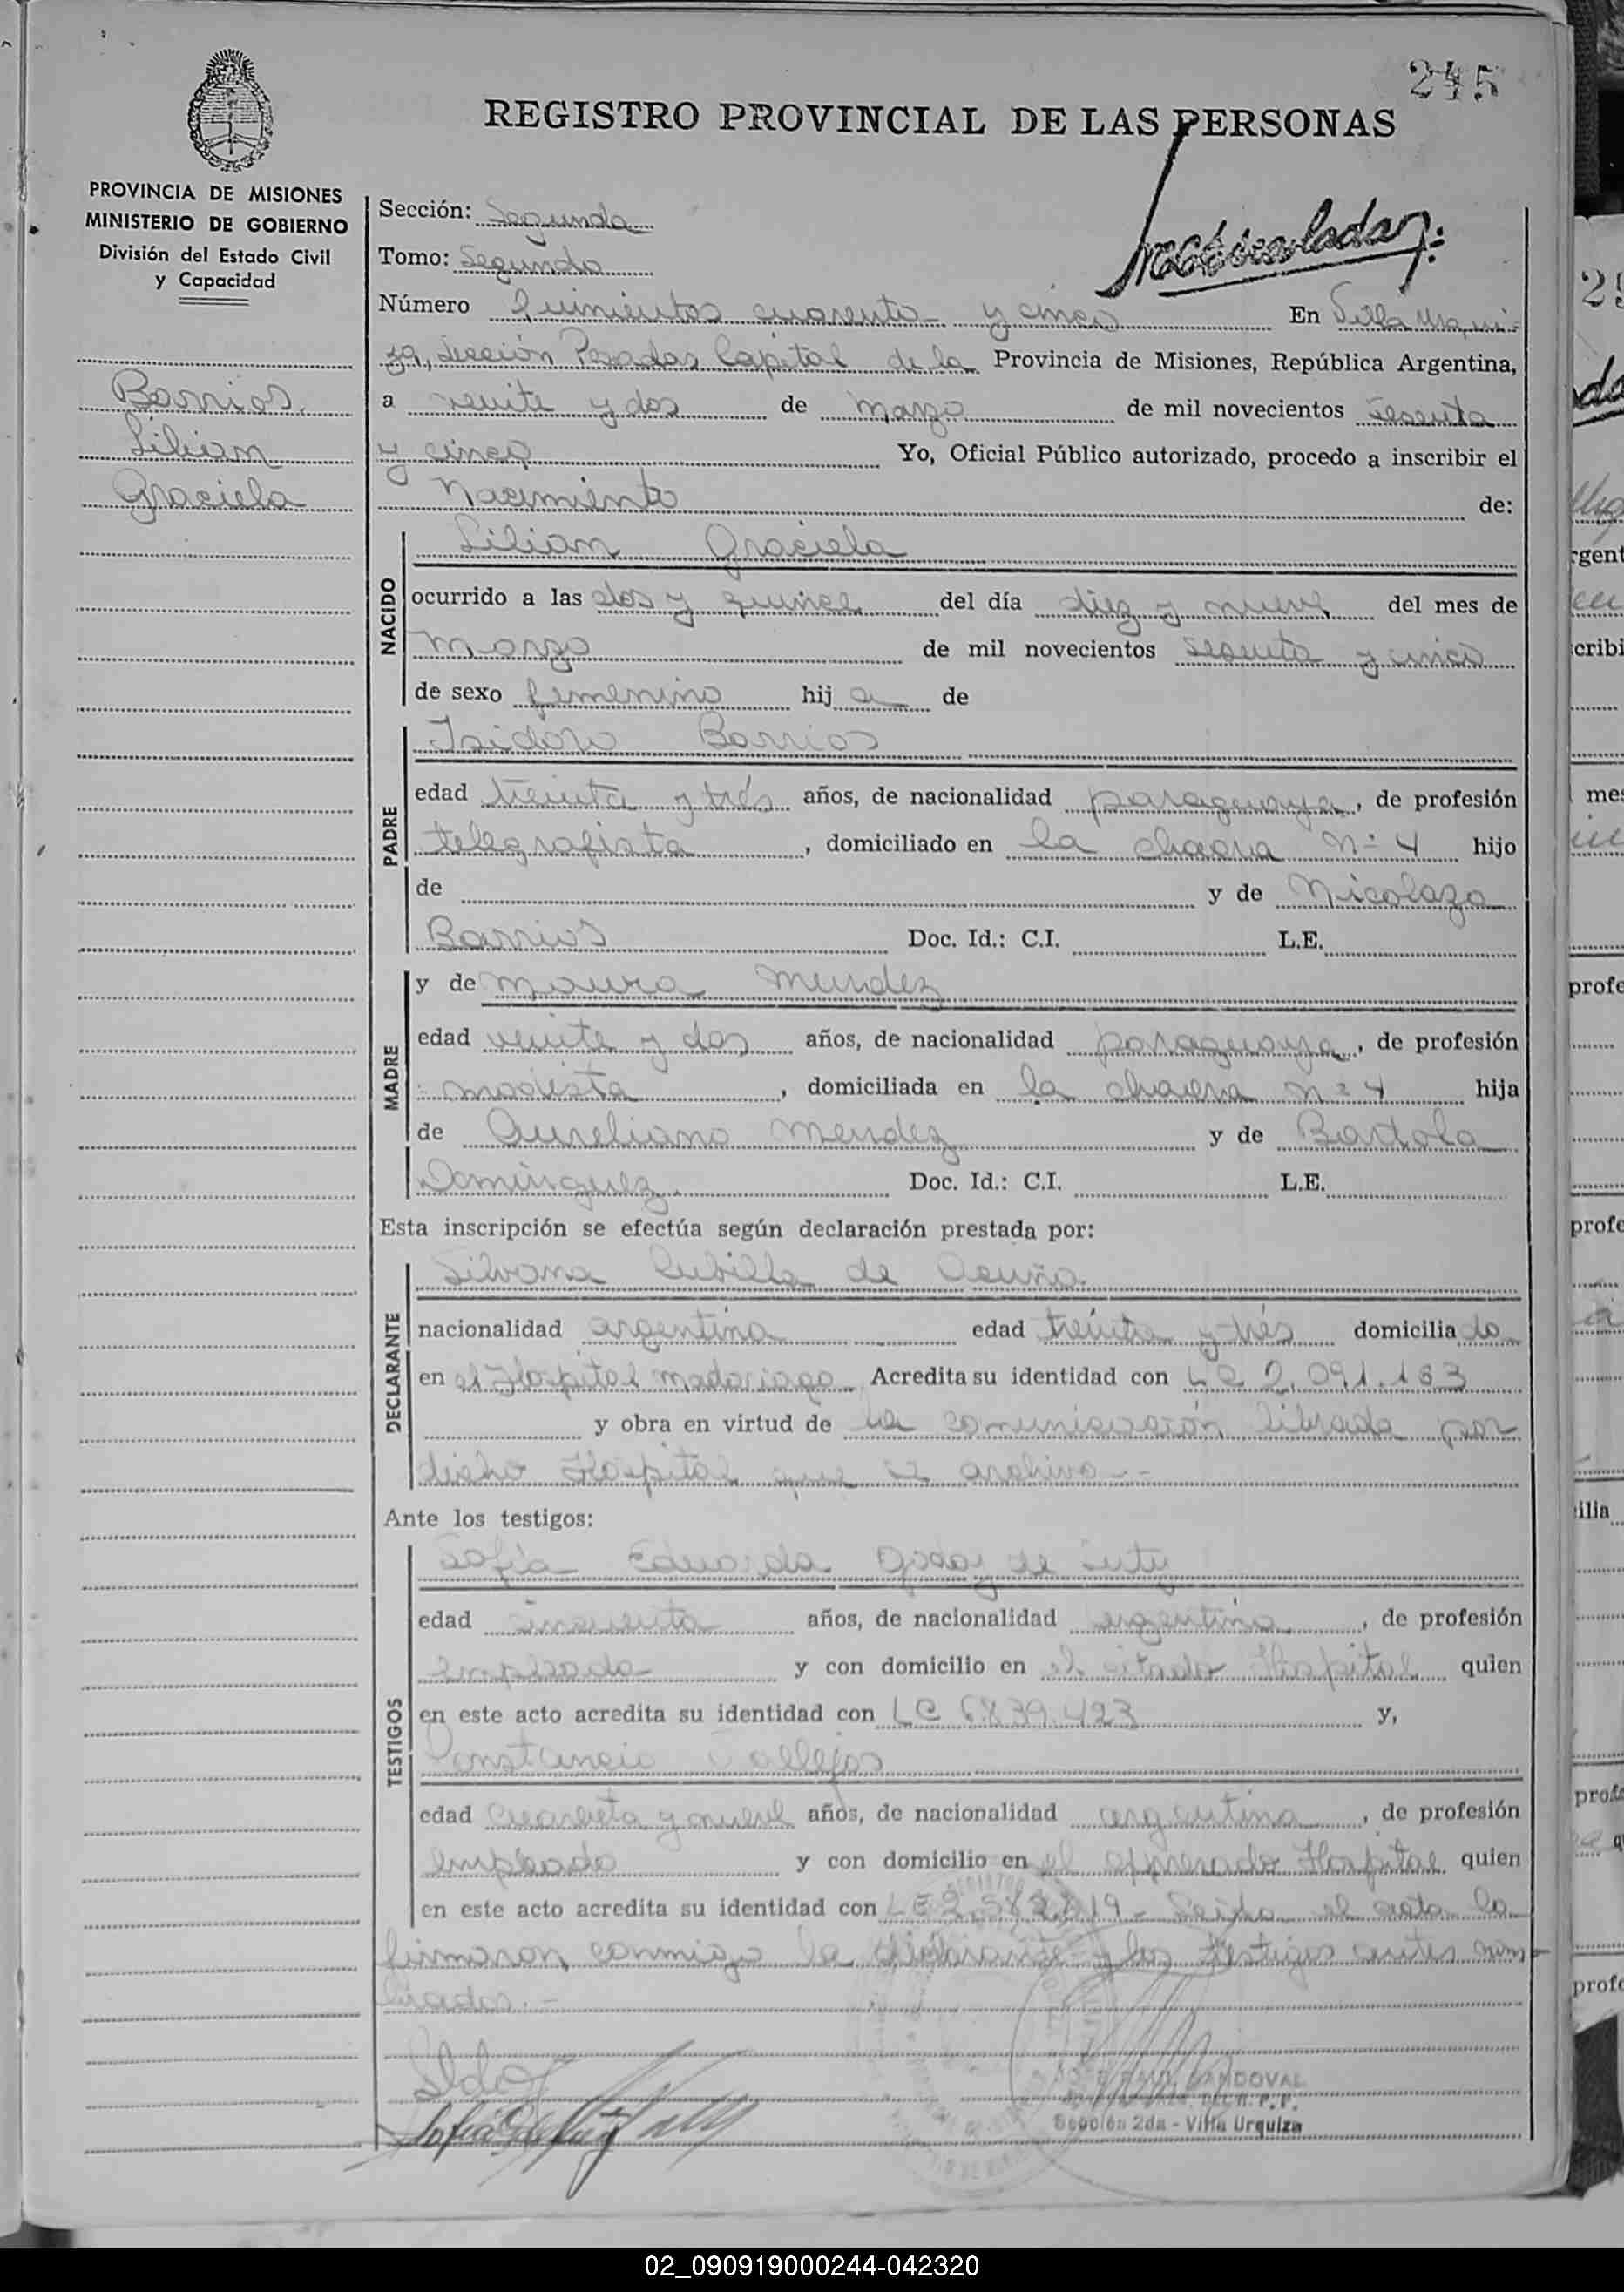 245
REGISTRO PROVINCIAL DE LAS PERSONAS
PROVINCIA DE MISIONES
MINISTERIO DE GOBIERNO
División del Estado Civil
y Capacidad
Barrios,
Lilian
Graciela
Sección: Segunda
Tomo: Segundo
Número Quinientos cuarenta y cinco En Villa Urqui-
za, Sección Posadas Capital de la Provincia de Misiones, República Argentina,
a veinte y dos de Marzo de mil novecientos sesenta
y cinco Yo, Oficial Público autorizado, procedo a inscribir el
Nacimiento de:
NACIDO
Lilian Graciela
ocurrido a las dos y quince del día diez y nueve del mes de
Marzo de mil novecientos sesenta y cinco
de sexo femenino hij a de
PADRE
Isidoro Barrios
edad treinta y trés años, de nacionalidad paraguaya, de profesión
telegrafista, domiciliado en la chacra Nº 4 hijo
de y de Nicolaza
Barrios Doc. Id.: C.I. L.E.
MADRE
y de Maura Mendez
edad veinte y dos años, de nacionalidad paraguaya, de profesión
modista, domiciliada en la chacra nº 4 hija
de Aureliano Mendez y de Bartola
Dominguez. Doc. Id.: C.I. L.E.
Esta inscripción se efectúa según declaración prestada por:
DECLARANTE
Silvana Cubilla de Acuña
nacionalidad argentina edad treinta y trés domicilia do
en el Hospital Madariaga Acredita su identidad con LC 2.091.163
y obra en virtud de la comunicación librada por
dicho Hospital que se archiva --
Ante los testigos:
TESTIGOS
Sofía Eduarda Godoy de
edad cincuenta años, de nacionalidad argentina, de profesión
empleada y con domicilio en el citado Hospital quien
en este acto acredita su identidad con LC 6.839.423 y,
Constancio Vallejos
edad cuarenta y nueve años, de nacionalidad argentina, de profesión
empleado y con domicilio en el expresado Hospital quien
en este acto acredita su identidad con LE - Leida el acta la
firmaron conmigo la declarante y los testigos antes nom-
brados.-
RAUL SANDOVAL
DEL R. P. P.
Sección 2da - Villa Urquiza
02_090919000244-042320